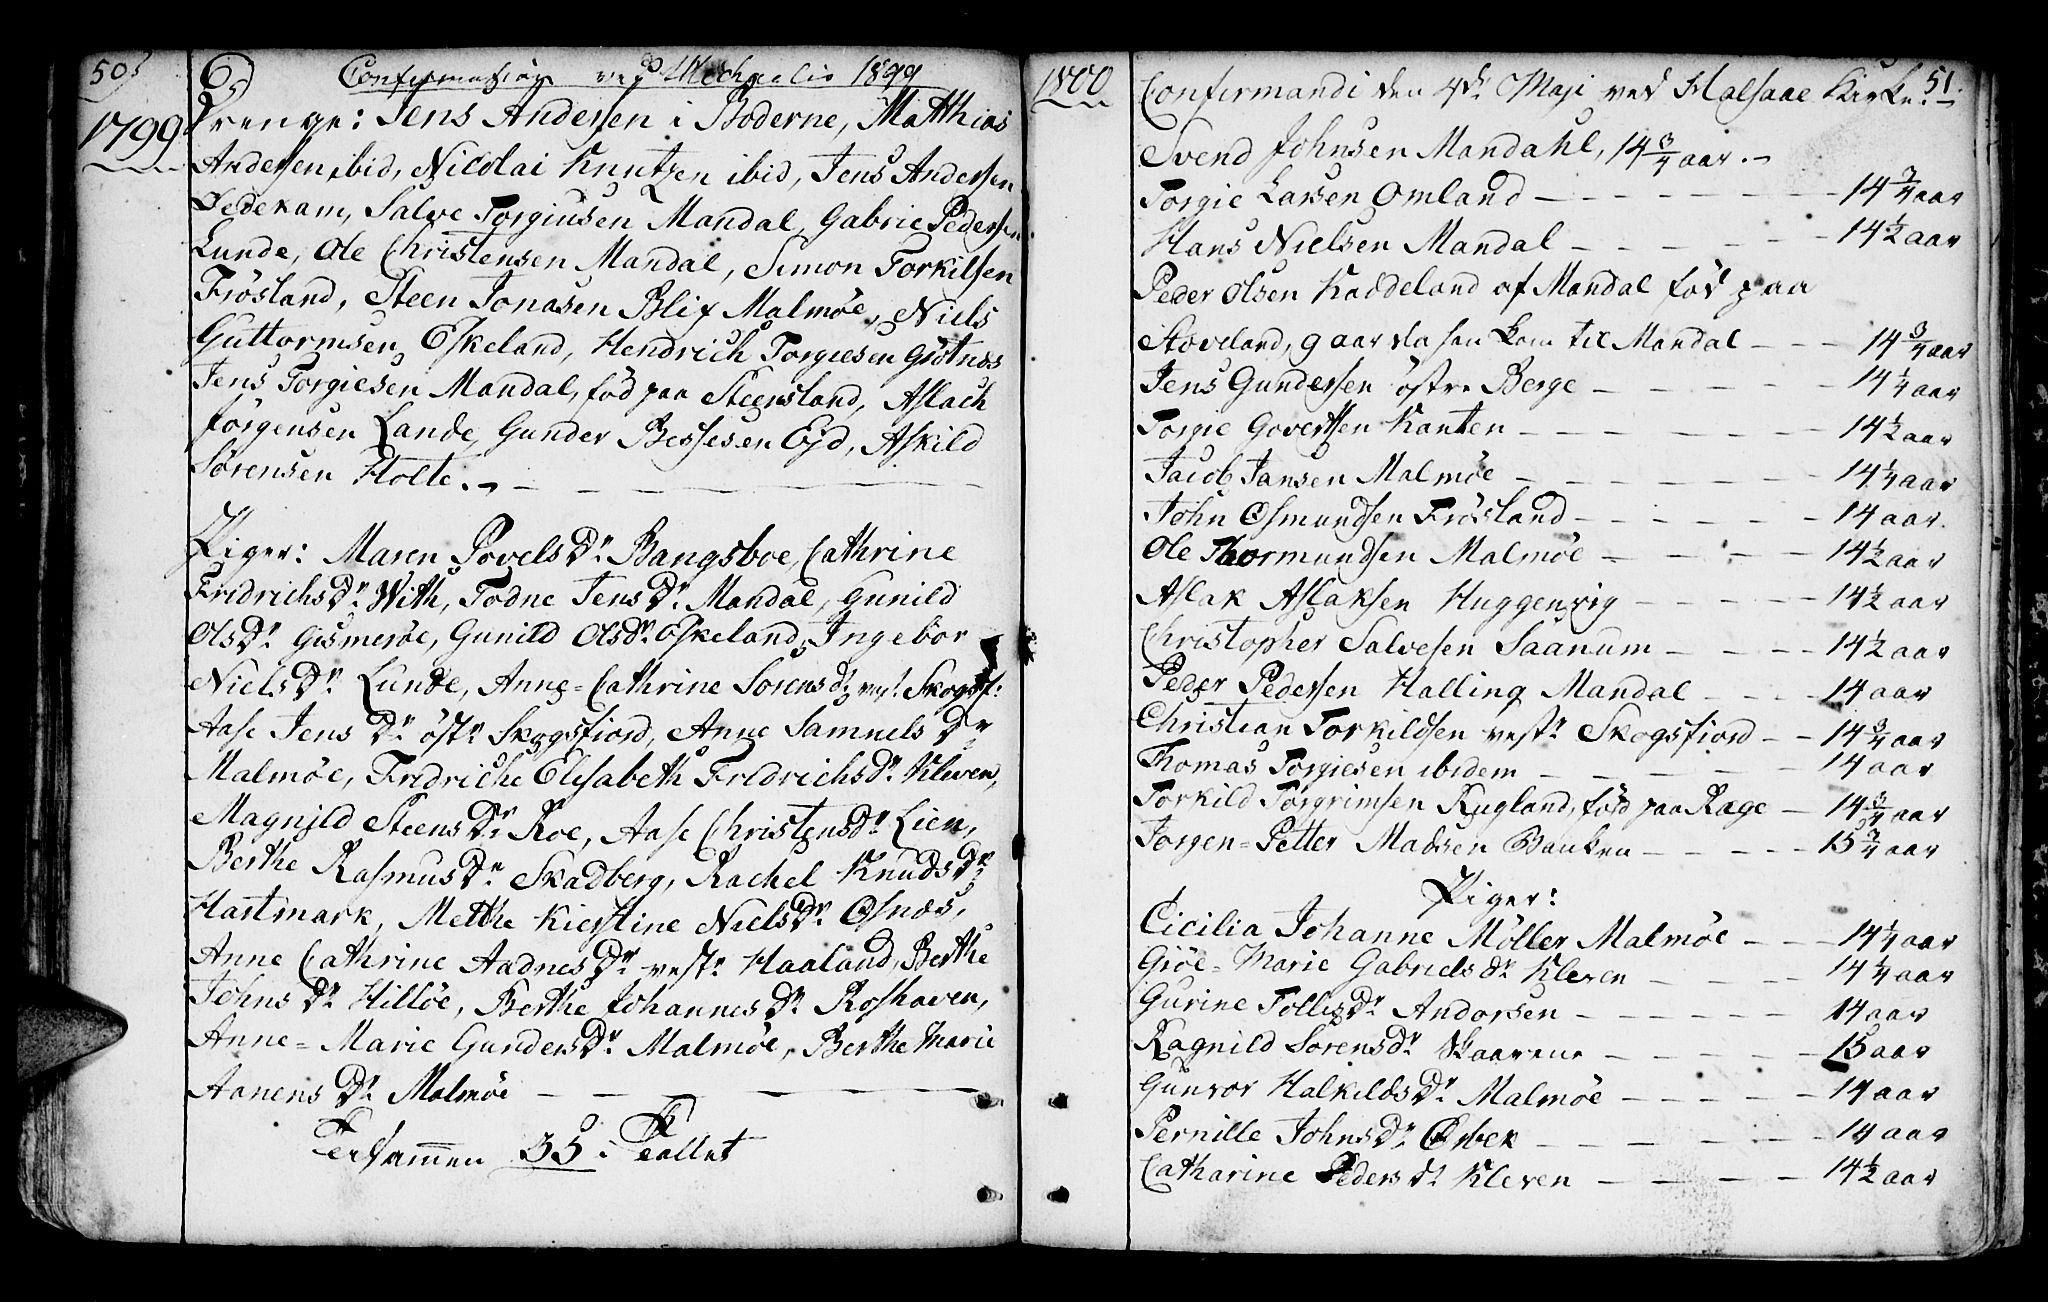 50
Confirmation ved Michaelis 1899
1799
Drenge: Jens Andersen i Boderne, Matthias
Andersen ibid, Nicolai Knutzen ibid, Jens Andersen
Dedekam, Salve Torgiusen Mandal, Gabriel Pedersen
Lunde, Ole Christensen Mandal, Simon Torkilsen
Frösland, Steen Jonasen Blix Malmöe, Niels
Guttormsen Eskeland, Hendrich Torgiesen Giötnes
Jens Torgiesen Mandal, föd paa Steensland, Aslach
Jörgensen Lande, Gunder Bessesen Ejd, Askild
Sörensen Holte.
Piger: Maren Povels Dr. Bangsboe, Cathrine
Fridrichs Dr. With, Todne Jens Dr. Mandal, Gunild
Ols Dr. Gismeröe, Gunild Ols Dr. Eskeland, Ingebor
Niels Dr. Lunde, Anne-Cathrine Sörens Dr. vest. Skogsf:
Aase Jens Dr. östr. Skogsfiord, Anne Samuels Dr
Malmöe, Fridriche Elisabeth Fridrichs Dr. Kleven,
Magnild Steens Dr. Roe, Aase Christens Dr. Lien,
Berthe Rasmus Dr. Skadberg, Rachel Knuds Dr.
Hartmark, Metthe Kierstine Niels Dr. Osnæs,
Anne Cathrine Aadnes Dr. vestr. Haaland, Berthe
Johns Dr. Hillöe, Berthe Johannes Dr. Roshaven,
Anne-Marie Gunders Dr. Malmöe, Berthe Marie
Aanens Dr. Malmöe
Tersammen 35 i Tallet
1800
Confirmandi den 4de Maji ved Halsaae Kirke.
51.
Svend Johnsen Mandahl, 14 3/4 aar.
Torgie Larsen Omland 14 3/4 aar
Hans Nielsen Mandal 14 1/2 aar
Peder Olsen Kaddeland af Mandal föd paa
Stoveland, 9 aar da han kom til Mandal 14 3/4 aar
Jens Gundersen östre Berge 14 1/4 aar
Torgie Govertsen Kanten 14 1/2 aar
Jacob Jansen Malmöe 14 1/4 aar
John Osmundsen Frösland 14 aar.
Ole Thormundsen Malmöe 14 1/2 aar
Aslak Aslaksen Huggenvig 14 1/2 aar
Christopher Salvesen Saanum 14 1/2 aar
Peder Pedersen Halling Mandal 14 aar
Christian Torkildsen vestr Skogsfiord 14 3/4 aar
Thomas Torgiesen ibidem 14 aar
Torkild Torgrimsen Rugland, föd paa Rage 14 3/4 aar
Jörgen-Petter Madsen Banken 15 3/4 aar
Piger:
Cicilia Johanne Möller Malmöe 14 1/4 aar
Giöe-Marie Gabriels Dr Kleven 14 1/4 aar
Gurine Tollis Dr Andorsen 14 aar
Ragnild Sörens Dr Skaarene 15 aar
Gunvor Halkilds Dr. Malmöe 14 aar
Pernille Johns Dr. 14 aar
Catharine Peders Dr. Kleven 14 1/2 aar